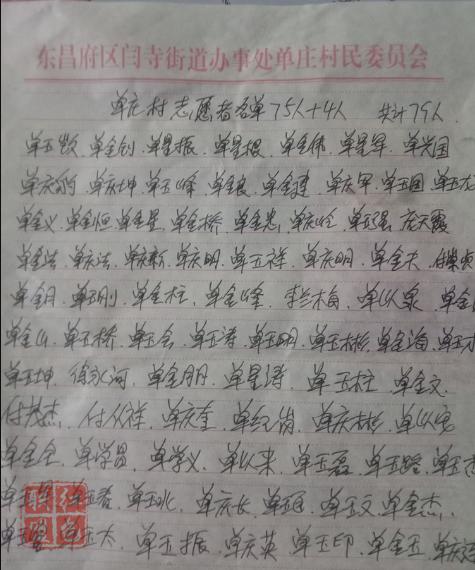 东昌府区闫寺街道办事处单庄村民委员会
单庄村志愿者名单75人+4人 共计79人
单玉凯、单金创、单星振、单星根、单金伟、单星军、单兴国
单庆、单庆坤、单玉峰、单金良、单金建、单庆军、单玉国、单玉龙
单金义、单金恒、单金星、单金桥、单金忠、单庆岭、单玉强、庞天霞
单金岩、单庆法、单庆新、单庆明、单玉祥、单庆明、单金夫、付
单金月、单玉刚、单金柱、单金峰、李兰梅、单以泉、单金
单金山、单玉桥、单玉会、单玉涛、单玉明、单玉彬、单金海、单玉
单玉坤、徐永河、单金朋、单星涛、单玉柱、单金文
付茂杰、付从祥、单庆奎、单纪岗、单庆彬、单以
单金全、单学员、单学义、单以来、单玉磊、单玉路、单玉
单玉、单玉水、单庆长、单玉、单玉文、单金杰、
单玉、单玉太、单玉振、单庆英、单玉印、单金玉、单庆